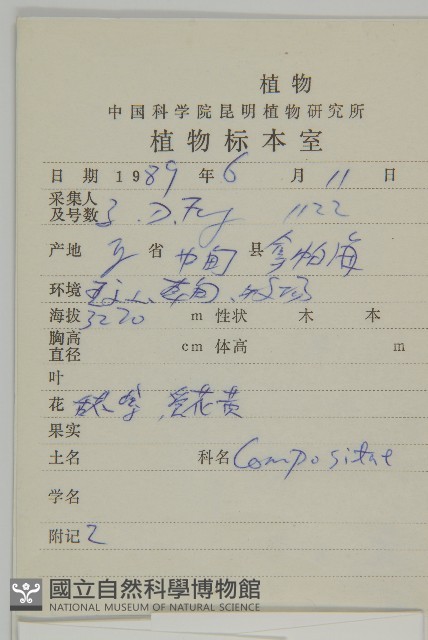 植物
中国科学院昆明植物研究所
植物标本室
日期 1989 年 6 月 11 日
采集人
及号数 1122
产地 省 中甸 县
环境
海拔 3270 m 性状 木 本
胸高
直径 cm 体高 m
叶
花 花黄
果实
土名 科名 Compositae
学名
附记 2
國立自然科學博物館
NATIONAL MUSEUM OF NATURAL SCIENCE